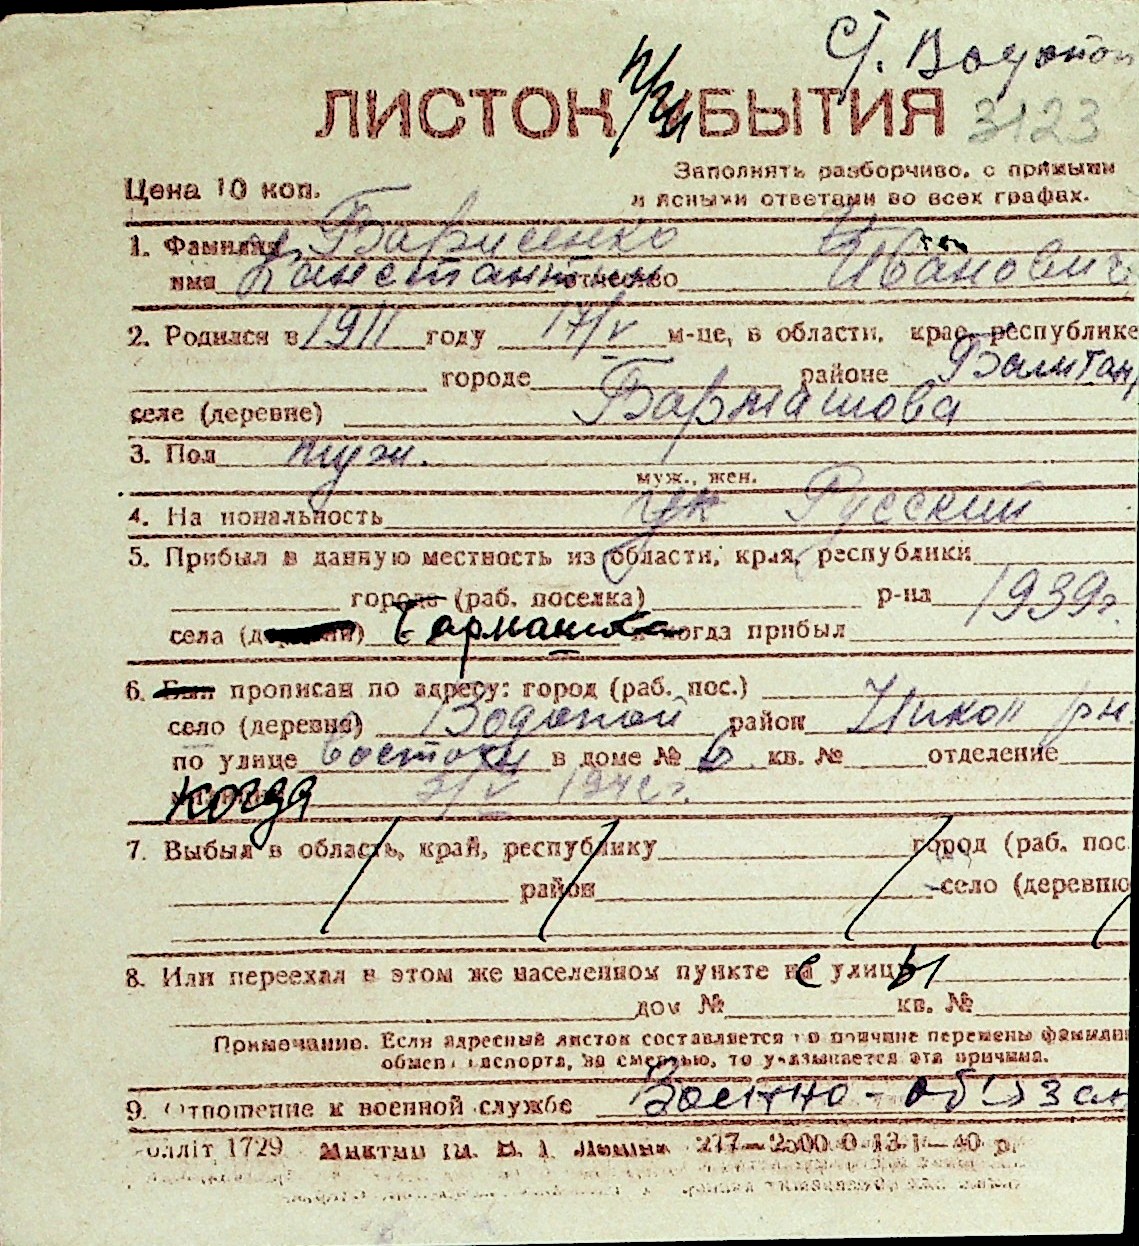 Ст. Водопой
ЛИСТОК УБЫТИЯ 3123
Заполнять разборчиво, с прямыми
Цена 10 коп. и ясными ответами во всех графах.
1. Фамилия Барисенко
имя Канстантин отчество Иванович
2. Родился в 1911 году 17/V м-це, в области, крае, республике
городе районе Балштан
селе (деревне) Бармашова
3. Пол муж.
муж., жен.
4. Национальность Русский
5. Прибыл в данную местность из области, края, республики
города (раб. поселка) р-на 1939г.
села ( ) когда прибыл
6. Был прописан по адресу: город (раб. пос.)
село (деревня) Водопой район Никол рн.
по улице восточн в доме № 6 кв. № отделение
когда 3/V 194 г.
7. Выбыл в область, край, республику город (раб. пос.
район село (деревню
8. Или переехал в этом же населенном пункте с улицы
дом № кв. №
Примечание. Если адресный листок составляется по причине перемены фамилии
обмена паспорта, за смертью, то указывается эта причина.
9. Отношение к военной службе Воєнно-обязан
олліт 1729